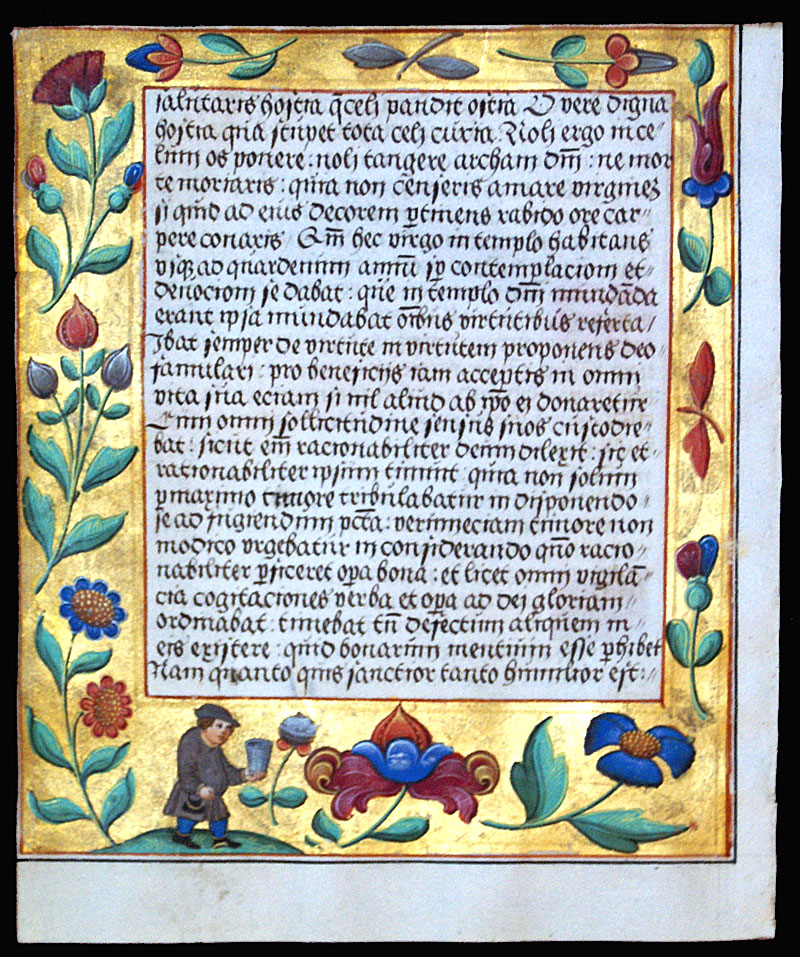 salutaris hostia q̄ celi pandit ostia O vere digna
hostia qua stupet tota celi curia. Noli ergo in ce-
lum os ponere: noli tangere archam dm̄: ne mor
te moriaris: quia non cēseris amare
si quid ad eius decorem ꝑtinens rabido ore car-
pere conaris / Qm̄ hec virgo in templo habitans
vsqꝫ ad annū contemplacioni et-
deuocioni se dabat: que in templo dm̄ mundāda
erant ipsa mundabat oībus virtutibus referta /
Ibat semper de virtute in virtutem proponens deo
famulari: pro beneficijs iam acceptis in omni
vita sua eciam si nil aliud ab ip̄o ei donaretur
Cum omni sollicitudine sensus suos custodie-
bat: sicut em̄ racionabiliter deum dilexit: sic et-
racionabiliter ipsum timuit quia non solum
ꝑ maximo timore tribulabatur in disponendo
se ad fugiendum pctā: verumeciam timore non
modico vrgebatur in considerando quo racio-
nabiliter ꝑficeret oꝑa bona: et licet omni vigilā-
cia cogitaciones verba et oꝑa ad dei gloriam
ordinabat: timebat tn̄ defectum aliquem in
eis existere: quid bonarum mentium esse ꝑhibet
Nam quanto quis sanctior tanto humilior est: